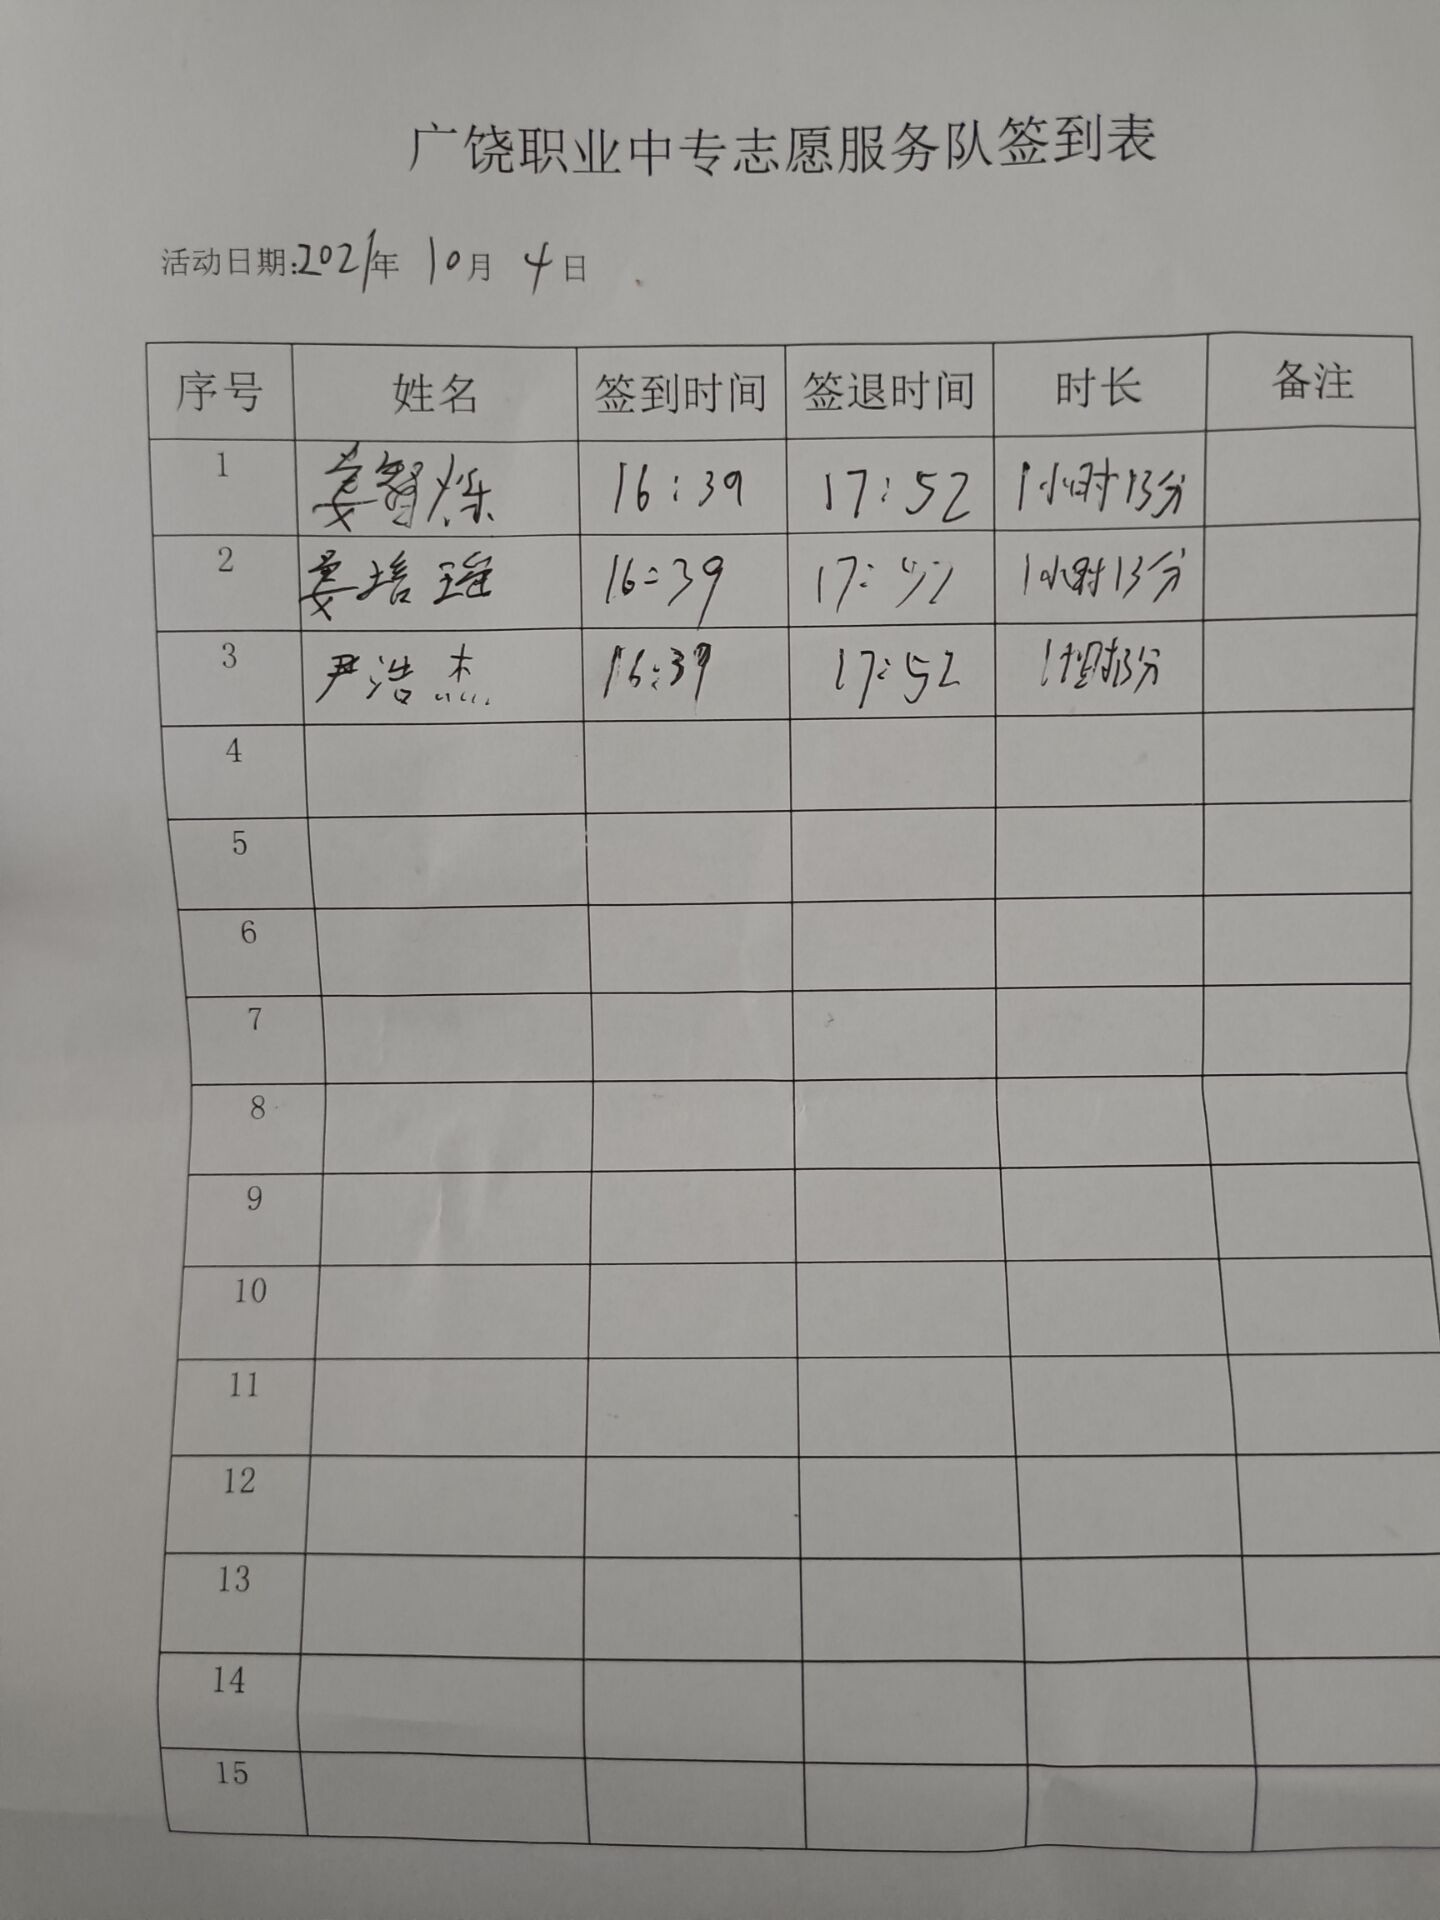 广饶职业中专志愿服务队签到表
活动日期:2021年 10月 4日
序号 姓名 签到时间 签退时间 时长 备注
1 姜智烁 16:39 17:52 1小时13分
2 姜培 16:39 17:52 1小时13分
3 尹浩杰 16:39 17:52 1小时13分
4
5
6
7
8
9
10
11
12
13
14
15